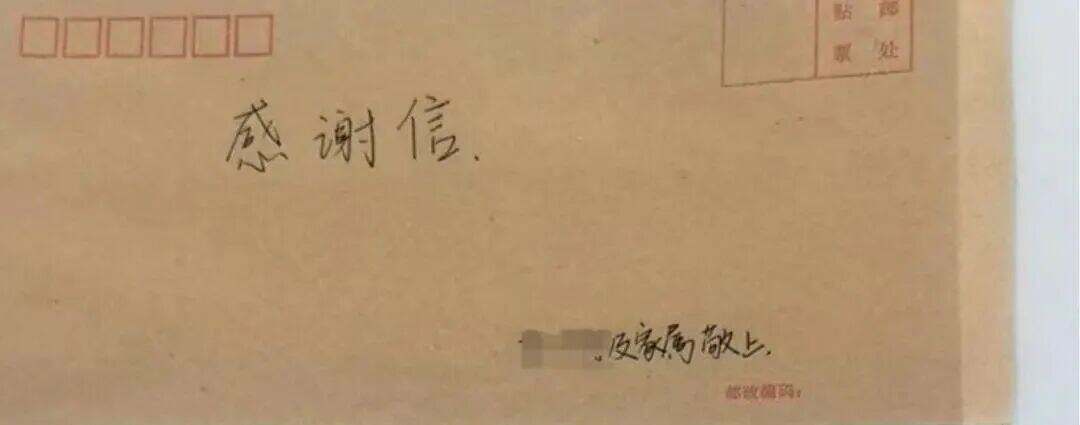 贴 邮
票 处
感谢信.
及家属敬上.
邮政编码: